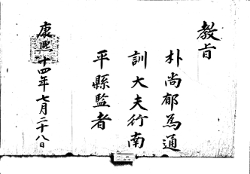 敎旨
朴尚郁爲通
訓大夫行南
平縣監者
康熙十四年七月二十八日